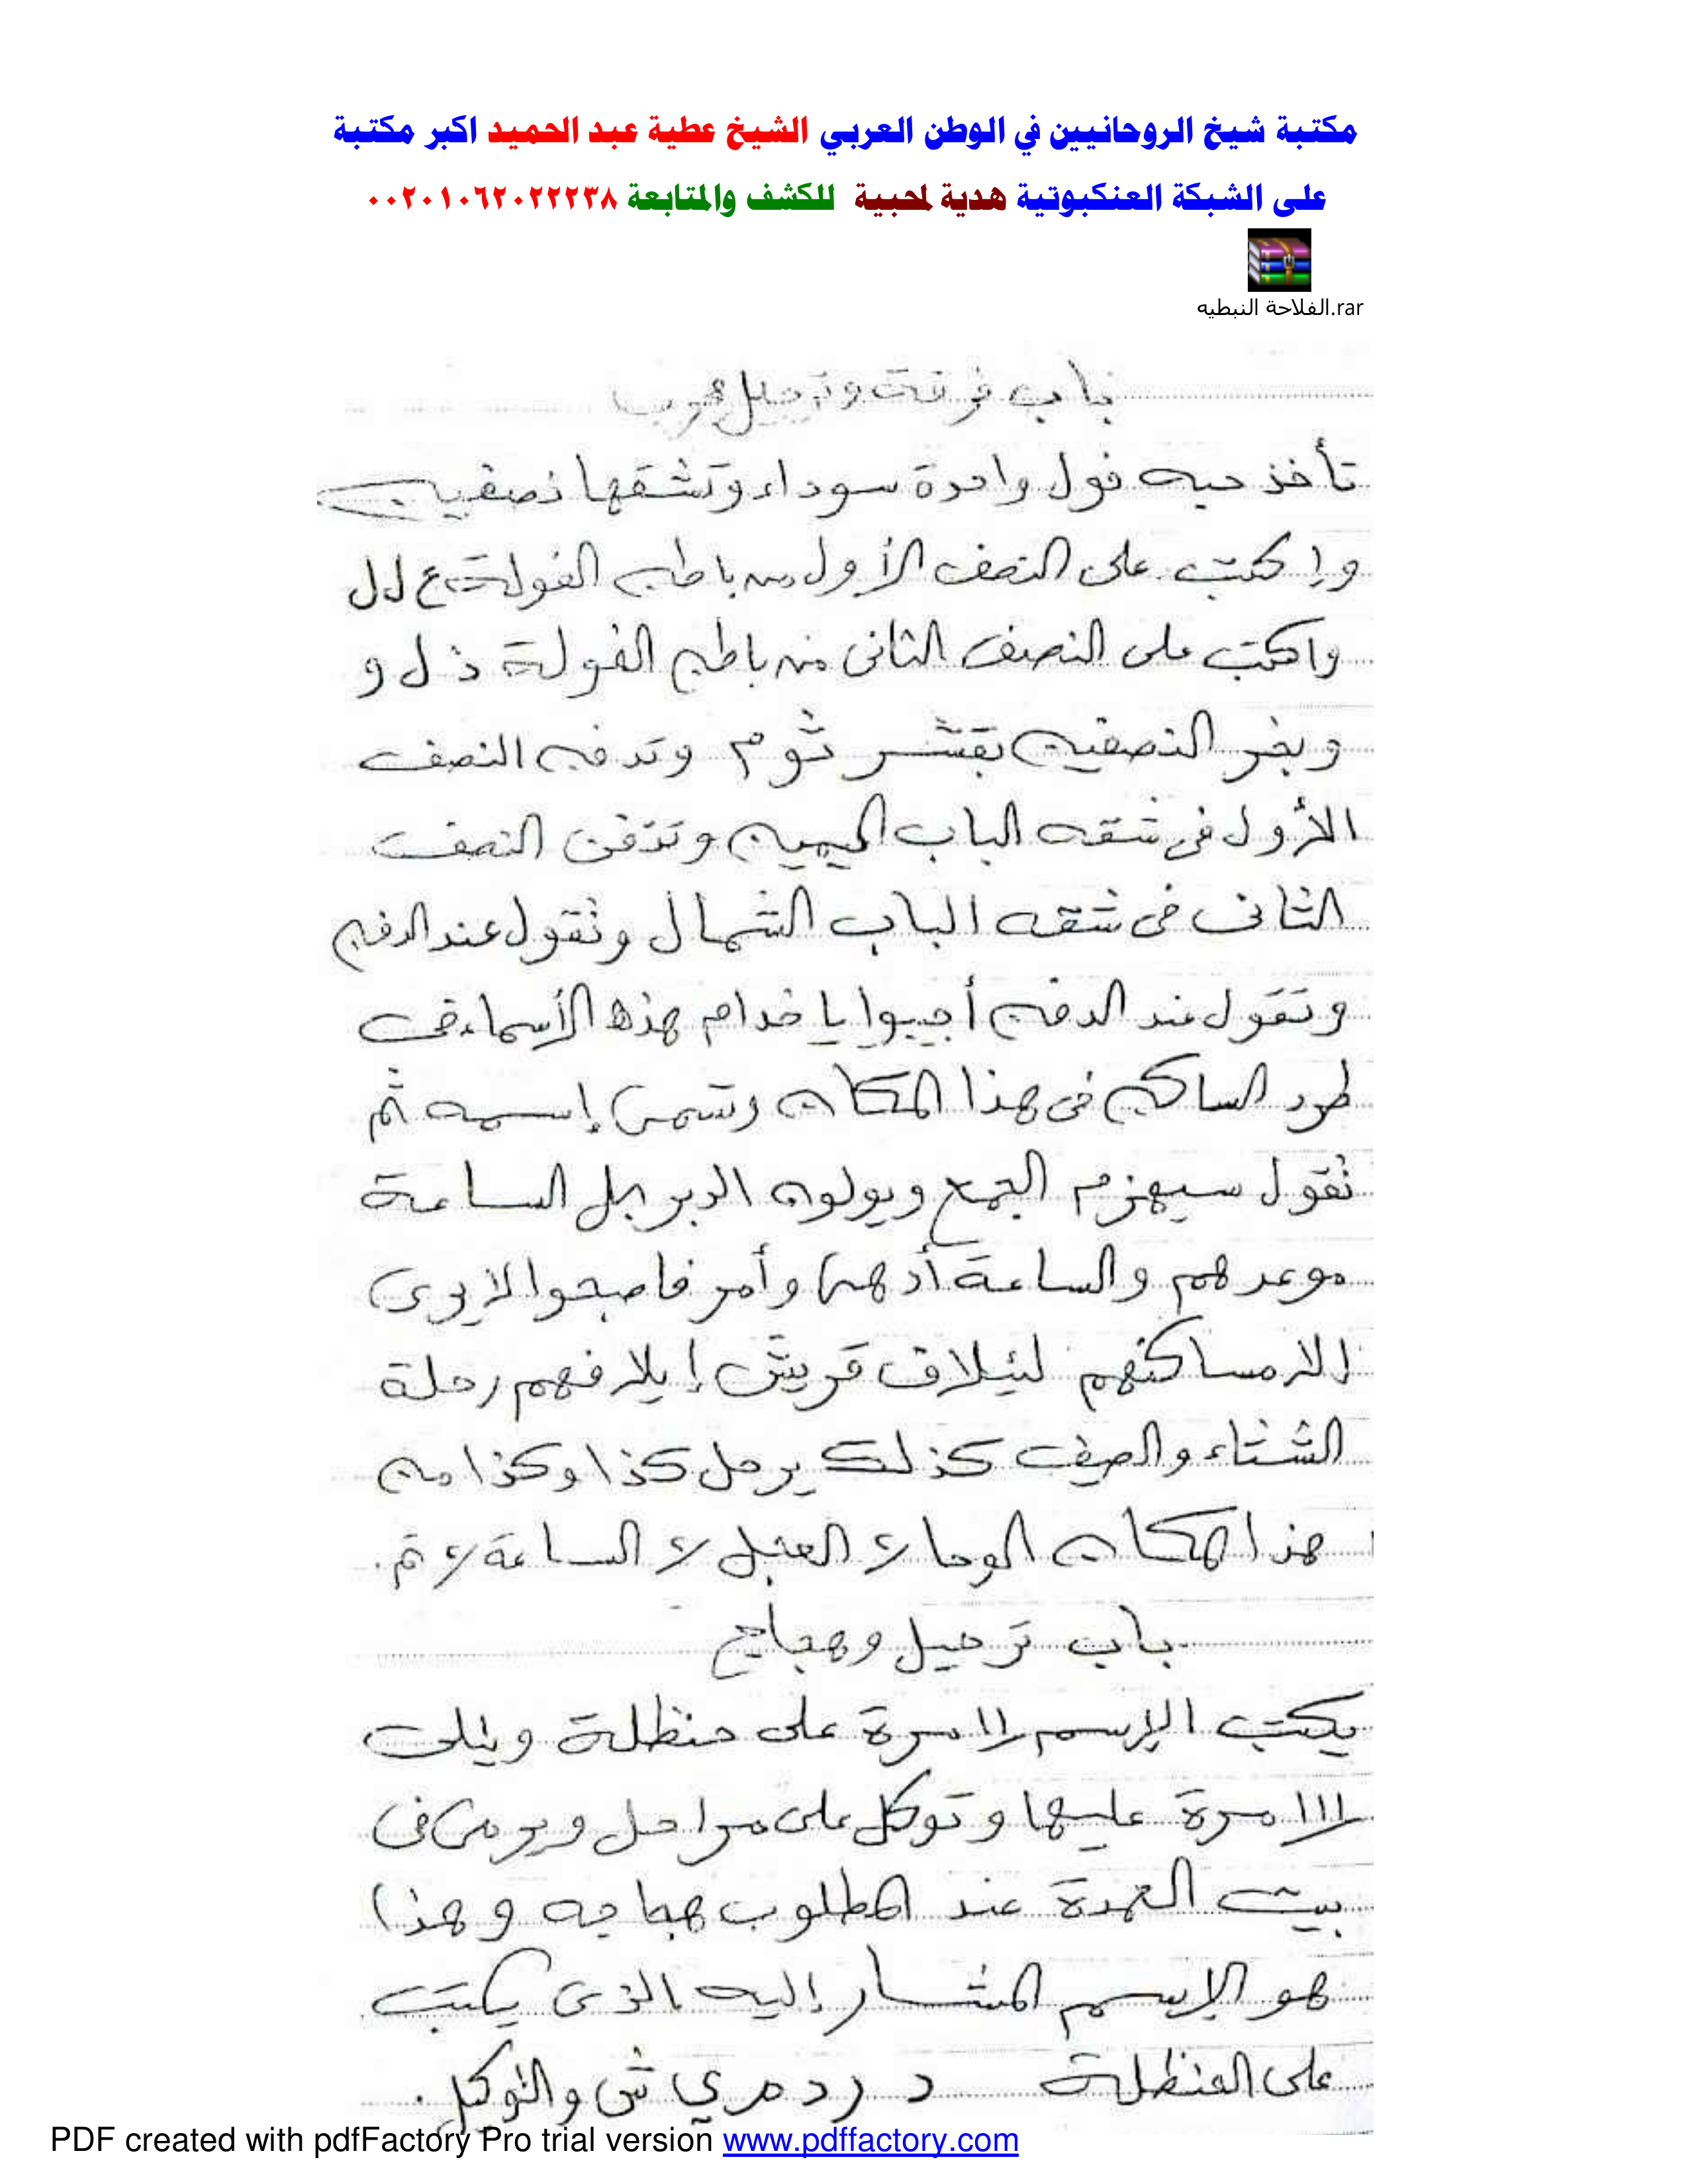 مكتبة شيخ الروحانيين في الوطن العربي الشيخ عطية عبد الحميد اكبر مكتبة
على الشبكة العنكبوتية هدية لمحبية للكشف والمتابعة ٠٠٢٠١٠٦٢٠٢٢٢٣٨
الفلاحة النبطيه.rar
باب فرقة وترحيل مجرب
تأخذ حبه فول واحدة سوداء وتشقها نصفين
واكتب على النصف الأول من باطن الفولة ع ل ل
واكتب على النصف الثانى من باطن الفولة ذ ل و
وبخر النصفين بقشر ثوم وتدفن النصف
الأول فى شقه الباب اليمين وتدفن النصف
الثانى فى شقه الباب الشمال وتقول عند الدفن
وتقول عند الدفن أجيبوا يا خدام هذه الأسماء فى
طرد الساكن فى هذا المكان وتسمى إسمه ثم
تقول سيهزم الجمع ويولون الدبر بل الساعة
موعدهم والساعة أدهى وأمر فاصبحوا لا يرى
إلا مساكنهم لئيلاف قريش إيلافهم رحلة
الشتاء والصيف كذلك يرحل كذا وكذا من
هذا المكان الوحا ٢ العجل ٢ الساعة ٢ تم.
باب ترحيل وهجاج
يكتب الإسم ١١ مرة على حنظلة ويتلى
١١١ مرة عليها وتوكل على مراحل ويرمى فى
بيت العمدة عند المطلوب هجاجه وهذا
هو الإسم المشار إليه الذى يكتب
على الحنظلة د ر د م ري ش والتوكيل.
PDF created with pdfFactory Pro trial version www.pdffactory.com